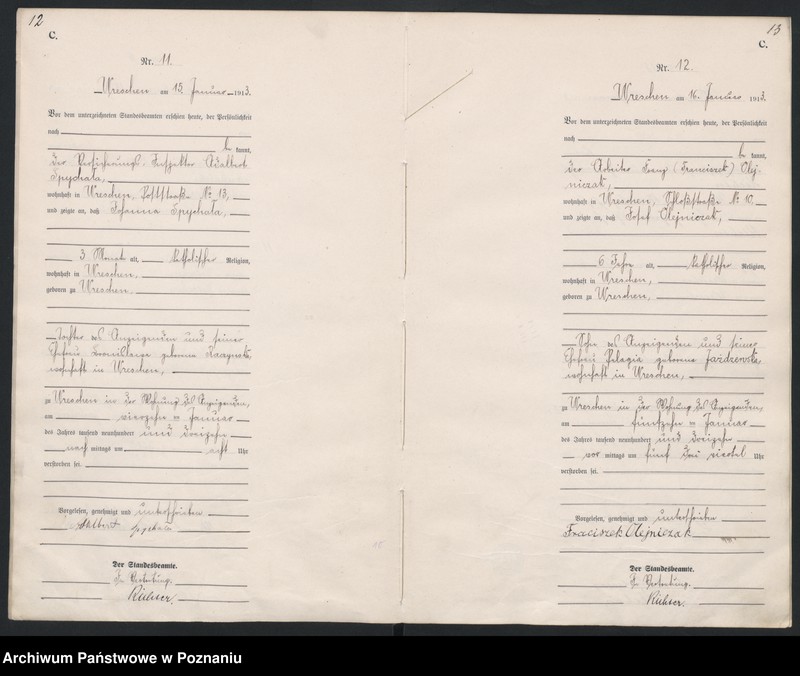 12
C.
Nr. 11.
Wreschen am 15. Januar 1913.
Vor dem unterzeichneten Standesbeamten erschien heute, der Persönlichkeit
nach
be kannt,
der Versicherungs-Inspektor Adalbert
Spychala,
wohnhaft in Wreschen, Poststraße No 13,
und zeigte an, daß Johanna Spychala,
3 Monat alt, katholischer Religion,
wohnhaft in Wreschen,
geboren zu Wreschen
Tochter des Anzeigenden und seiner
Ehefrau geborene
wohnhaft in Wreschen,
zu Wreschen in der Wohnung des Anzeigenden,
am vierzehnten Januar
des Jahres tausend neunhundert und dreizehn
nach mittags um acht Uhr
verstorben sei.
Vorgelesen, genehmigt und unterschrieben
Adalbert Spychala
Der Standesbeamte.
In Vertretung.
Richter.
13
C.
Nr. 12.
Wreschen am 16. Januar 1913.
Vor dem unterzeichneten Standesbeamten erschien heute, der Persönlichkeit
nach
be kannt,
der Arbeiter Franz (Franciszek) Olej-
niczak,
wohnhaft in Wreschen, Schloßstraße No 10,
und zeigte an, daß Josef Olejniczak,
6 Jahre alt, katholischer Religion,
wohnhaft in Wreschen,
geboren zu Wreschen,
Sohn des Anzeigenden und seiner
Ehefrau Pelagia geborene Jazdzewska
wohnhaft in Wreschen,
zu Wreschen in der Wohnung des Anzeigenden,
am fünfzehnten Januar
des Jahres tausend neunhundert und dreizehn
vor mittags um fünf drei viertel Uhr
verstorben sei.
Vorgelesen, genehmigt und unterschrieben
Franciszek Olejniczak
Der Standesbeamte.
In Vertretung.
Richter.
Archiwum Państwowe w Poznaniu